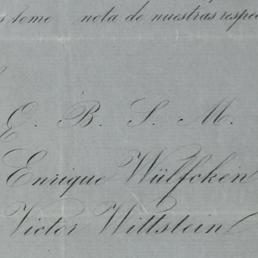 tome nota de nuestras
E. B. S. M.
Enrique Wülfcken
Victor Wittstein